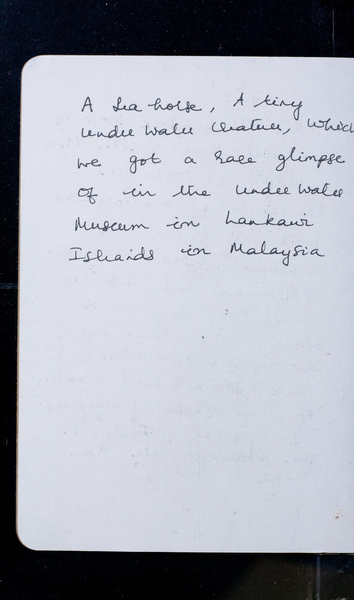 A Sea horse, A tiny
under water Creature, which
we got a rare glimpse
of in the under water
Museum in Lankawi
Islands in Malaysia